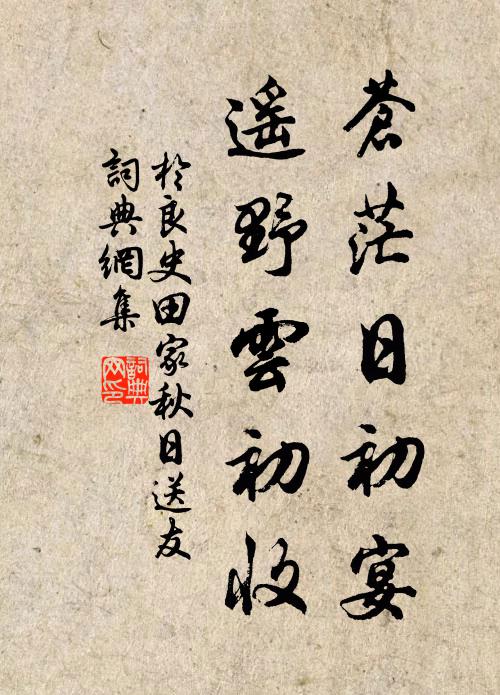 蒼茫日初宴
遥野雲初收
於良史田家秋日送友
詞典網集
詞典網印